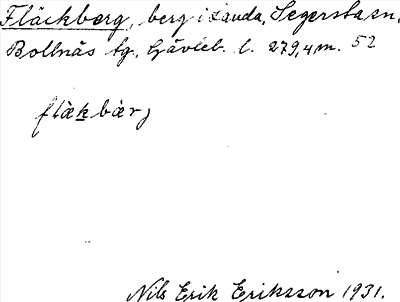 Fläckberg, berg i Landa, Segersta sn,
Bollnäs tg, Gävleb. l. 279,4 m. 52
flàkbær̀j
Nils Erik Eriksson 1931.